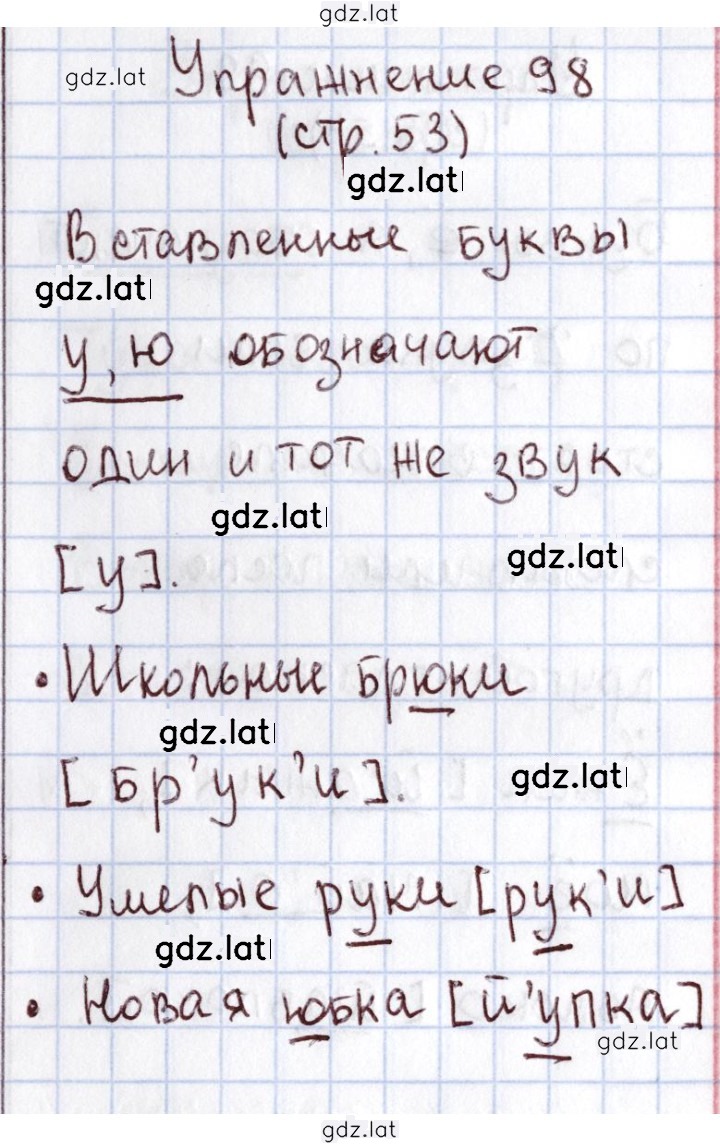 gdz.lat
gdz.lat
Упражнение 98
(стр. 53)
gdz.lat
Вставленные буквы
gdz.lat
у, ю обозначают
один и тот же звук
gdz.lat
gdz.lat
[у].
• Школьные брюки
gdz.lat
[бр'ук'и].
gdz.lat
• Умелые руки [рук'и]
gdz.lat
• Новая юбка [й'упка]
gdz.lat
gdz.lat